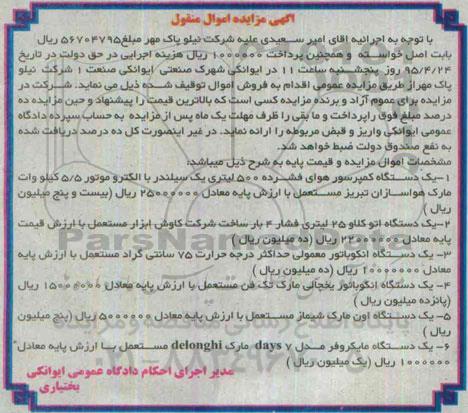 آگهی مزایده اموال منقول
با توجه به اجرائیه آقای امیر سعیدی علیه شرکت نیلو پاک مهر مبلغ ۵۶۷۰۴۷۹۵ ریال
بابت اصل خواسته و همچنین پرداخت ۱۰۰۰۰۰۰ ریال هزینه اجرایی در حق دولت در تاریخ
۹۵/۴/۲۴ روز پنجشنبه ساعت ۱۱ در ایوانکی شهرک صنعتی ایوانکی صنعت ۱ شرکت نیلو
پاک مهر از طریق مزایده عمومی اقدام به فروش اموال توقیف شده ذیل می نماید. شرکت در
مزایده برای عموم آزاد و برنده مزایده کسی است که بالاترین قیمت را پیشنهاد و حین مزایده ده
درصد مبلغ فوق را پرداخت و ما بقی را ظرف مهلت یک ماه پس از مزایده به حساب سپرده دادگاه
عمومی ایوانکی واریز و قبض مربوطه را ارائه نماید. در غیر اینصورت کل ده درصد دریافت شده
به نفع صندوق دولت ضبط خواهد شد.
مشخصات اموال مزایده و قیمت پایه به شرح ذیل میباشد:
۱-یک دستگاه کمپرسور هوای فشرده ۵۰۰ لیتری یک سیلندر با الکترو موتور ۵/۵ کیلو وات
مارک هواسازان تبریز مستعمل با ارزش پایه معادل ۲۵۰۰۰۰۰۰ ریال (بیست و پنج میلیون
ریال )
۲-یک دستگاه اتو کلاو ۲۵ لیتری فشار ۴ بار ساخت شرکت کاوش ابزار مستعمل با ارزش قیمت
پایه معادل ریال (ده میلیون ریال )
۳-یک دستگاه انکوباتور معمولی حداکثر درجه حرارت ۷۵ سانتی گراد مستعمل با ارزش پایه
معادل ۱۰۰۰۰۰۰۰ ریال (ده میلیون ریال )
۴- یک دستگاه انکوباتور یخچالی مارک تک فن مستعمل با ارزش پایه معادل ۱۵۰۰۰۰۰۰ ریال
(پانزده میلیون ریال )
۵- یک دستگاه اون مارک شیماز مستعمل با ارزش پایه معادل ۵۰۰۰۰۰۰ ریال (پنج میلیون
ریال )
۶- یک دستگاه مایکروفر مدل ۷ days مارک delonghi مستعمل با ارزش پایه معادل
۱۰۰۰۰۰۰ ریال (یک میلیون ریال )
مدیر اجرای احکام دادگاه عمومی ایوانکی
بختیاری